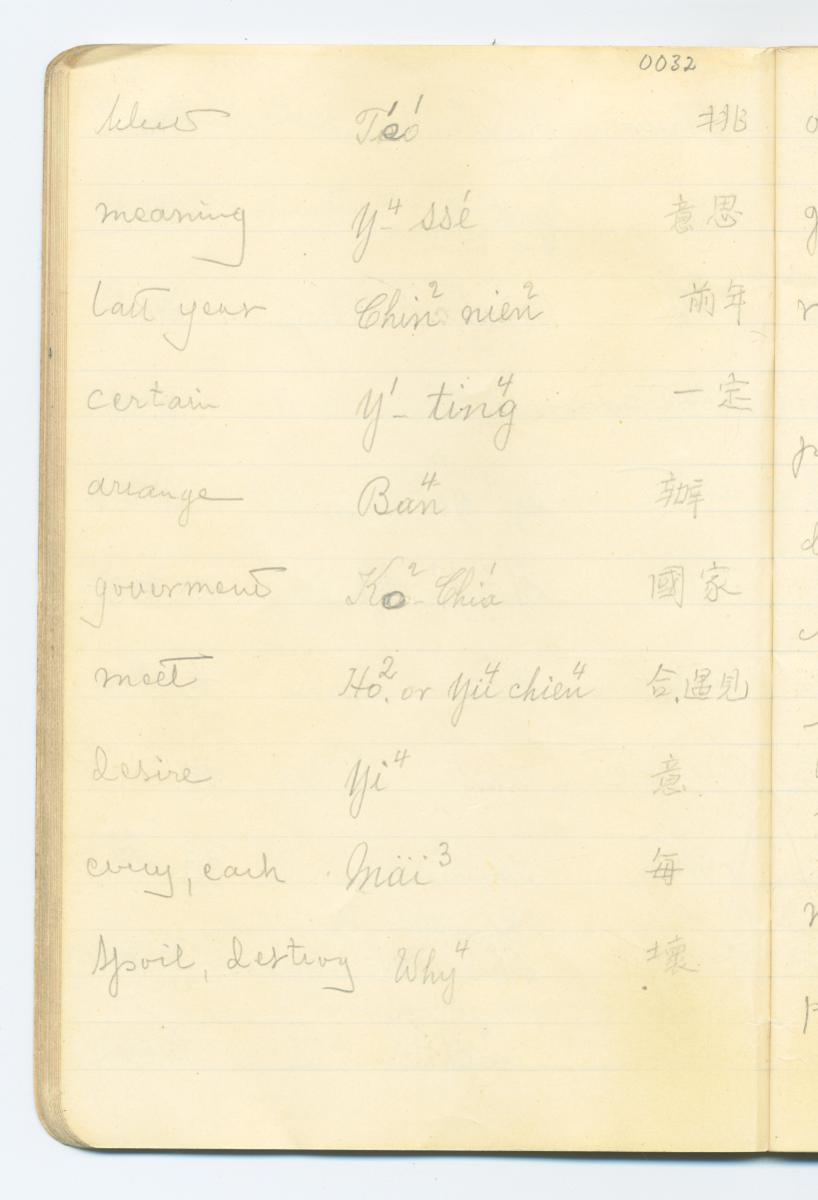 0032
Téó 挑
meaning Y⁴- ssé 意思
last year Chin² nien² 前年
certain Y¹- ting⁴ 一定
arrange Ban⁴ 辦
gouverment Ko²- Chiá 國家
meet Ho². or Yiü⁴ chien⁴ 合.遇見
desire Yi⁴ 意
every, each Mäi³ 每
Spoil, destroy Why⁴ 壞